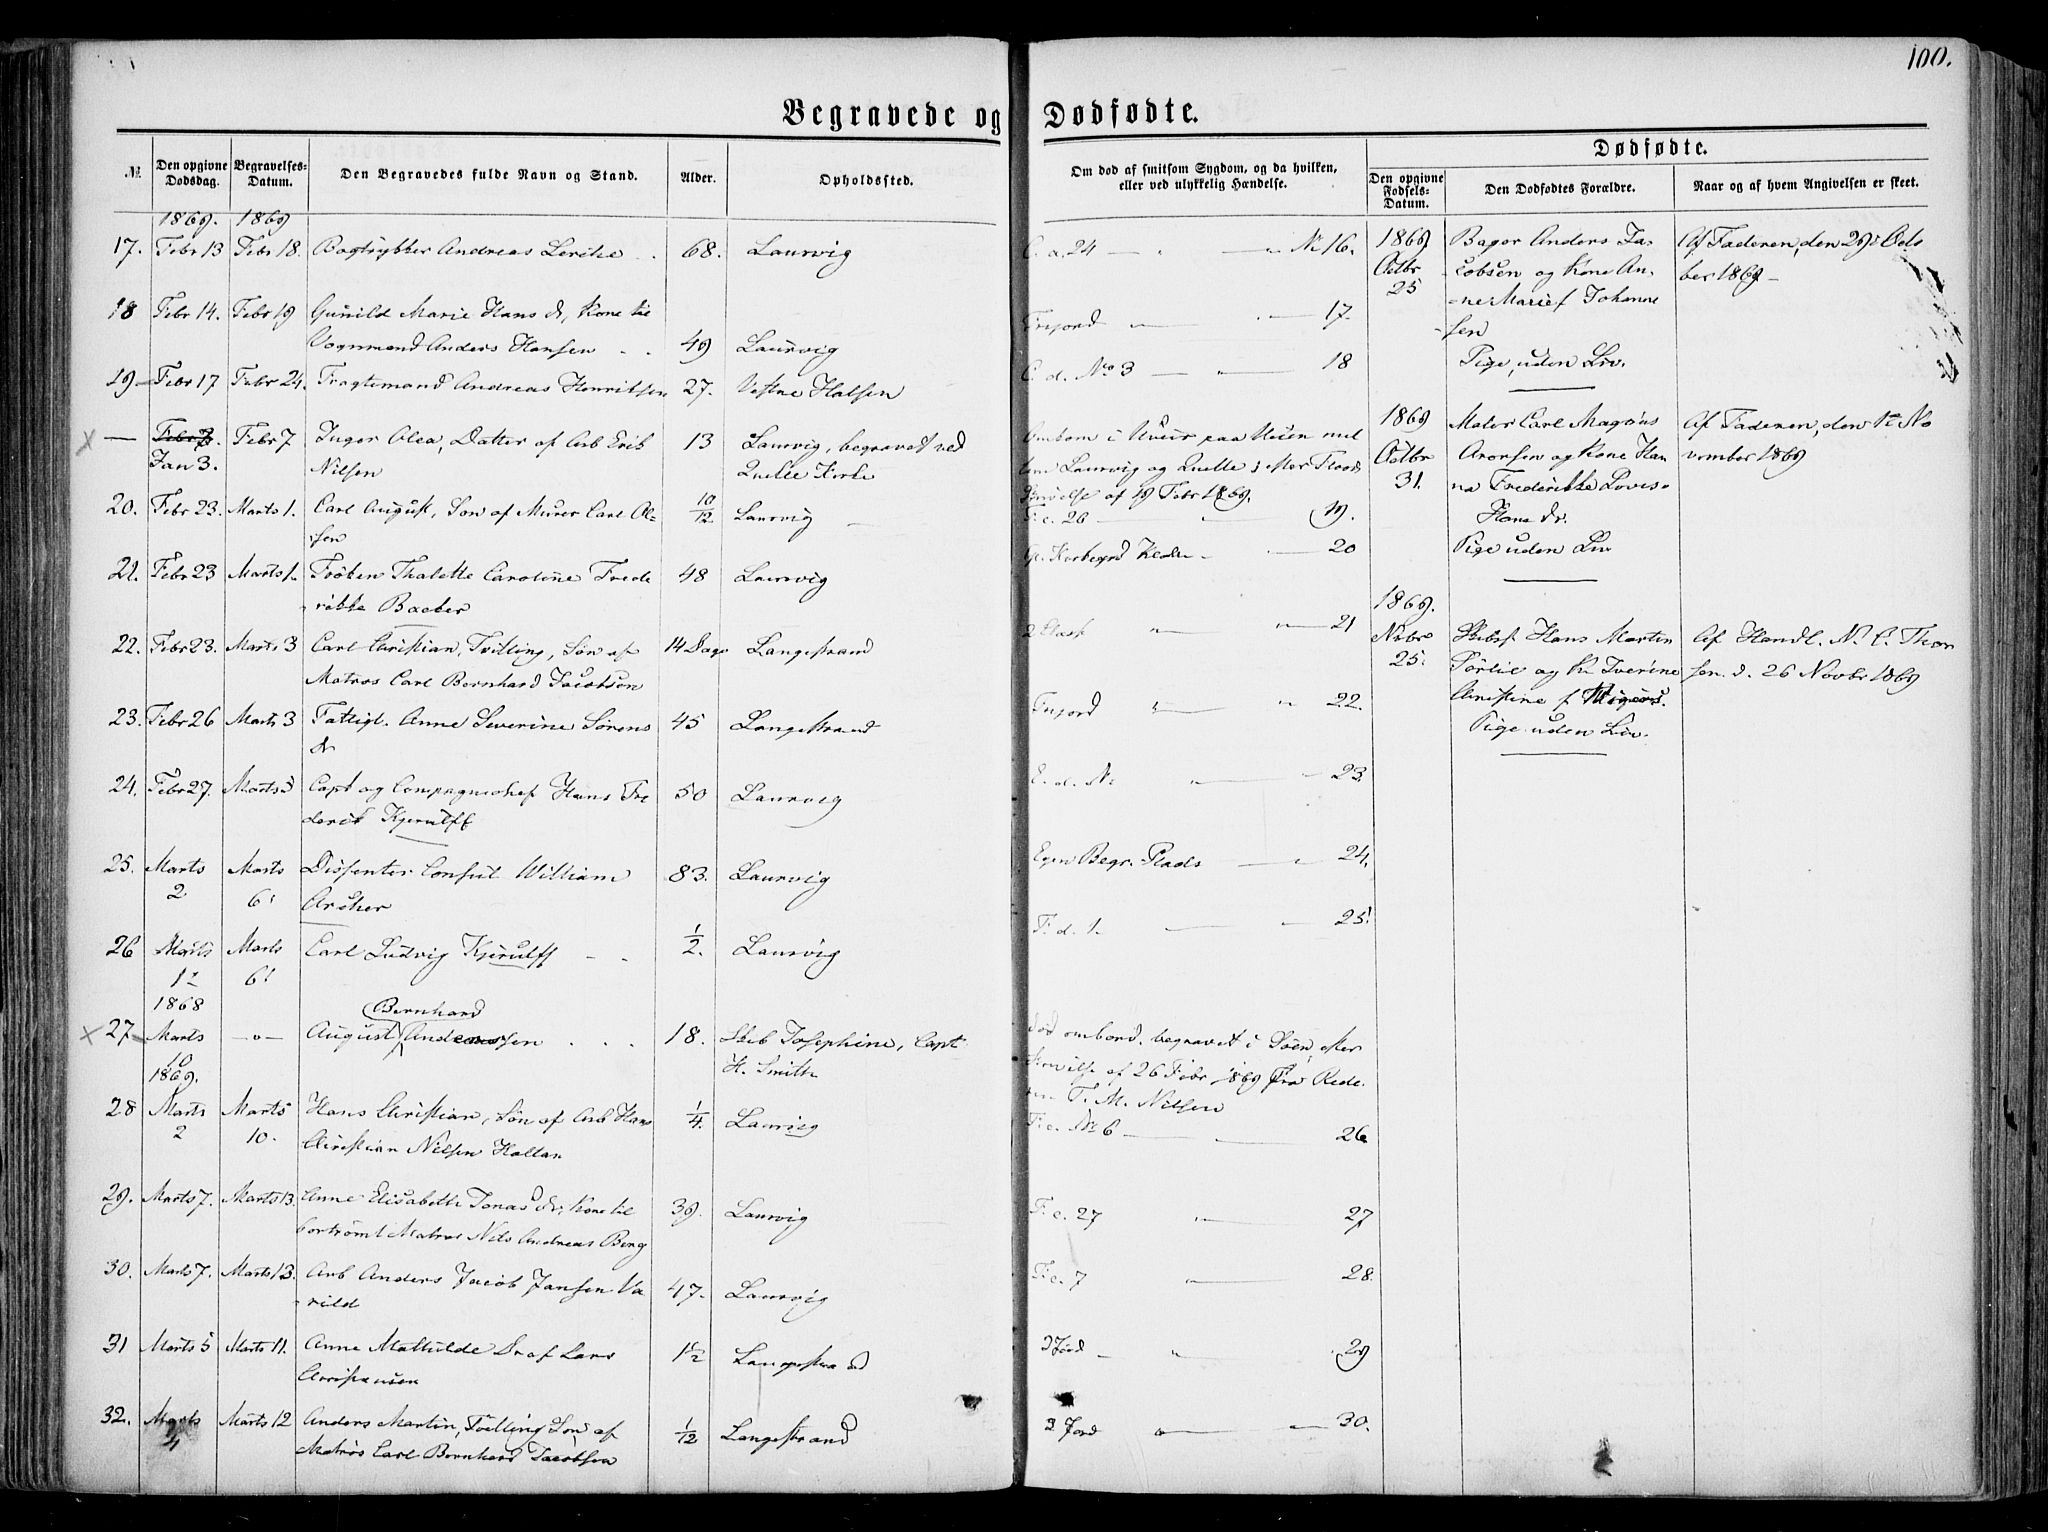 100.
Begravede og Dødfødte.
№
Den opgivne Dødsdag.
Begravelses-Datum.
Den Begravedes fulde Navn og Stand.
Alder.
Opholdssted.
Om død af smitsom Sygdom, og da hvilken,
eller ved ulykkelig Hændelse.
Dødfødte.
Den opgivne Fødsels-Datum.
Den Dødfødtes Forældre.
Naar og af hvem Angivelsen er skeet.
1869. 1869
17. Febr 13 Febr 18. Bogtrykker Andreas Lerche 68. Laurvig C. a. 24 — " — " № 16.
18 Febr 14. Febr 19 Gunild Marie Hans d., Kone til
Vognmand Anders Hansen 49 Laurvig Trejord — " — 17.
19 Febr 17 Febr 24. Fragtemand Andreas Henriksen 27. Vestre Halsen C. d. No 3 — " — 18
— Febr 7. Febr 7 Inger Olea, Datter af Arb Erik 13 Laurvig, begravet ved
Jan 3. Nilsen Qvelle Kirke
Omkom i Uveir paa Veien mel
lem Laurvig og Qvelle
af 19 Febr 1869.
20. Febr 23. Marts 1. Carl August, Søn af Murer Carl Ol- 10/12 Laurvig F. c. 26 — 19.
sen
21. Febr 23 Marts 1. Frøken Thalette Caroline Frede 48 Laurvig — 20
rikke Backer
22. Febr 23. Marts 3 Carl Christian, Tvilling, Søn af 14 Dage Langestrand — " — 21
Matros Carl Bernhard Jacobsen
23. Febr 26 Marts 3 Fattigl. Anne Severine Sørens 45 Langestrand Trejord — " — 22.
dr
24. Febr 27. Marts 5 Capt og Compagniechef Hans Fre 50 Laurvig E. d. № — " — 23.
derik Kjerulff
25. Marts Marts Dissenter Consul William 83. Laurvig Egen Begr. Plads — " — 24.
2 6. Archer
26 Marts Marts Carl Ludvig Kjerulff 1/2. Laurvig F. d. 1. — 25.
1ste 6.
1868 Bernhard
27 Marts —"— August Andersen 18. Skib Josephine, Capt
10 H. Smith
Død ombord, begravet i Søen, efter
Skrivelse af 26 Febr 1869 fra Rede-
ren T. M. Nilsen
1869.
28 Marts Marts Hans Christian, Søn af Arb Hans 1/4. Laurvig F. c. № 6 — 26
2 10. Christian Nilsen Hallan
29. Marts 7. Marts 13. Anne Elisabeth Jonas dr, Kone til 39. Laurvig F. c. 27 — " — 27
bortrømt Matros Nils Andreas Berg
30. Marts 7. Marts 13. Arb Anders Jacob Jansen Va 47. Laurvig F. c. 7 — " — 28.
rild
31 Marts 5 Marts 11. Anne Mathilde Dr af Lars 1 1/2 Langestrand 3 Jord — " — 29
Christensen
32. Marts Marts 12 Anders Martin, Tvilling Søn af 1/12 Langestrand 3 Jord — " — 30.
4 Matros Carl Bernhard Jacobsen
1869 Bager Anders Ja- Af Faderen, den 29de Octo
Octbr cobsen og Kone An- ber 1869 —
25 ne Marie f. Johanne
sen
Pige, uden Liv.
1869 Maler Carl Magnus Af Faderen, den 1ste No
Octbr Aronsen og Kone Han vember 1869
31. na Frederikke Lovise
Hans dr.
Pige uden Liv
1869.
Novbr Skibsf Hans Martin Af Handl. N. C. Thor
25. Sørlie og K. Iverine sen. d. 26 Novbr 1869
Christine f.
Pige uden Liv.